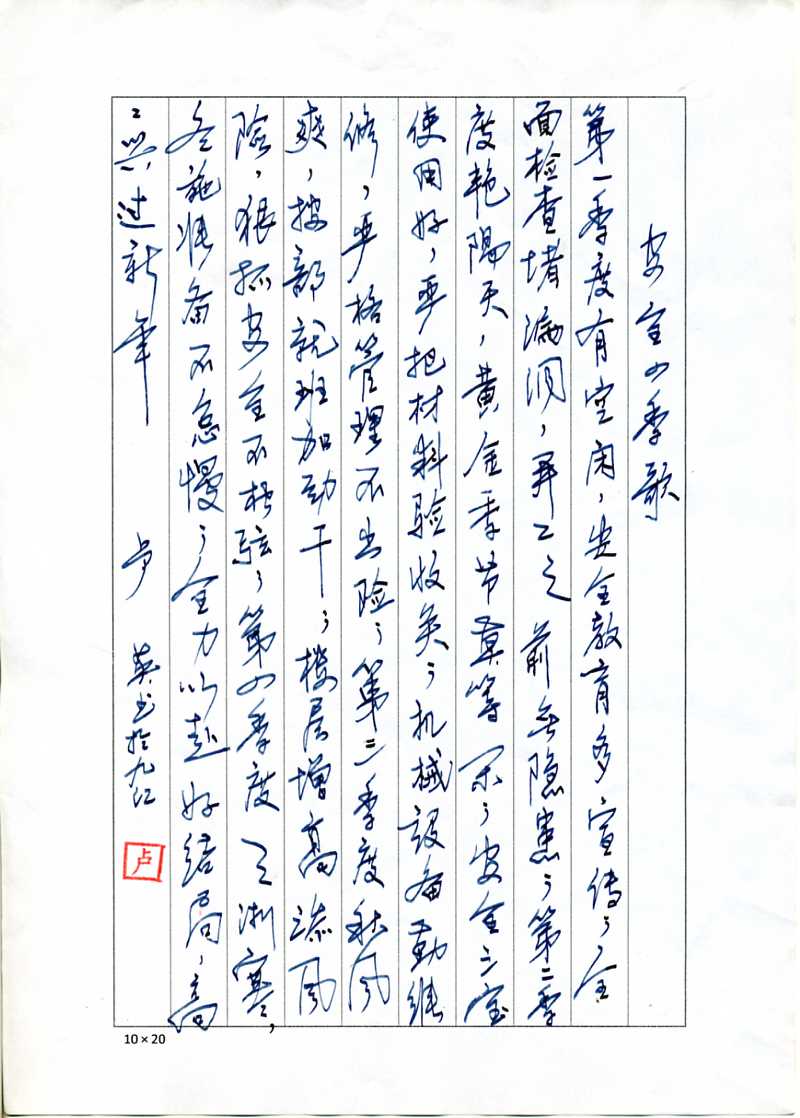 安全四季歌
第一季度有空闲，安全教育多宣传；全
面检查堵漏洞，开工之前无隐患；第二季
度艳阳天，黄金季节莫等闲；安全三宝
使用好，严把材料验收关；机械设备勤维
修，严格管理不出险；第三季度秋风
爽，搜部就班加劲干；楼层增高添风
险，狠抓安全不松弦；第四季度天渐寒，
冬施准备不怠慢；全力以赴好结局，高
高兴兴过新年
卢 英书于九江
卢
10×20